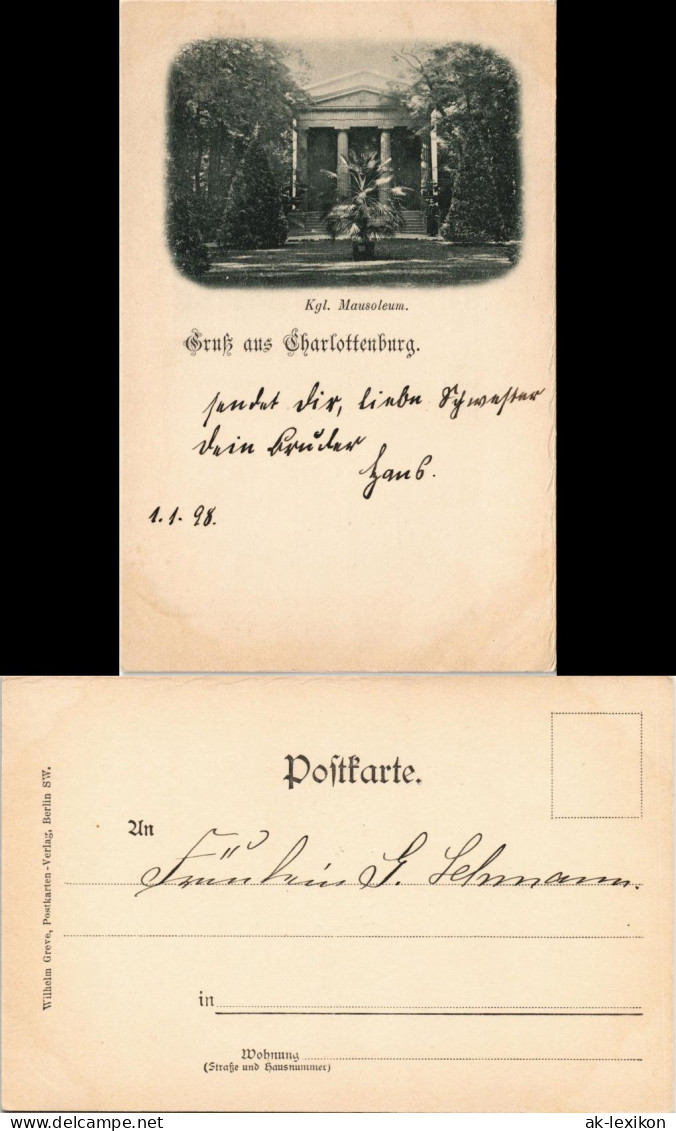 Kgl. Mausoleum.
Gruß aus Charlottenburg.
sendet dir, liebe Schwester
dein Bruder
Hans.
1.1.98.
Postkarte.
An
Fräulein G. Lehmann.
in
Wohnung
(Straße und Hausnummer)
Wilhelm Greve, Postkarten-Verlag, Berlin SW.
www.ak-lexikon.de
ak-lexikon